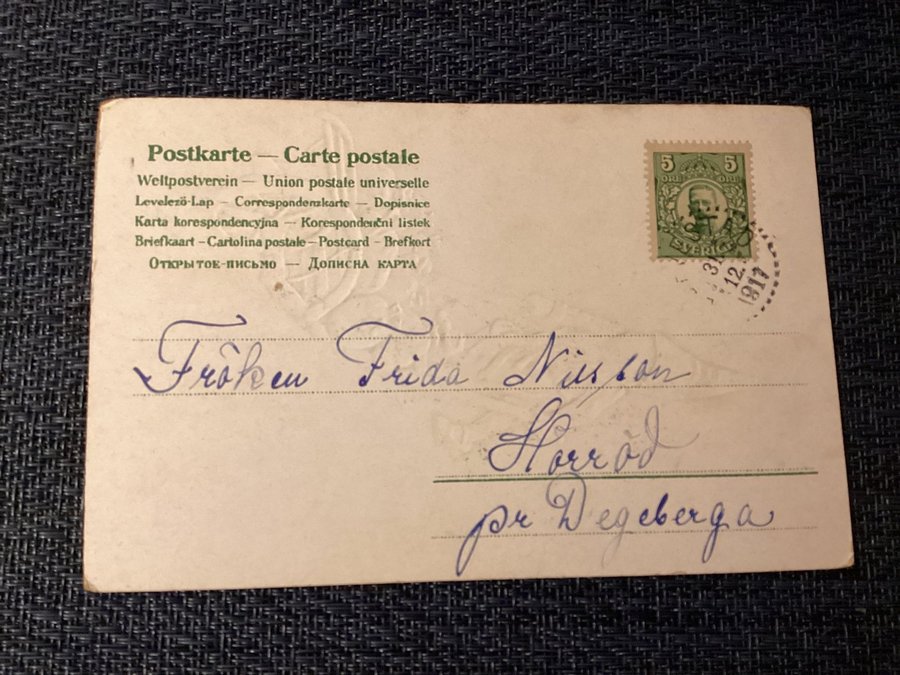 Postkarte — Carte postale
Weltpostverein — Union postale universelle
Levelező-Lap – Correspondenzkarte – Dopisnice
Karta korespondencyjna — Korespondenčni listek
Briefkaart – Cartolina postale – Postcard – Brefkort
Открыток-письмо — Дописна карта
5 5
ÖRE ÖRE
SVERIGE
31
12
1917
Fröken Frida Nilsson
Horröd
pr Degeberga